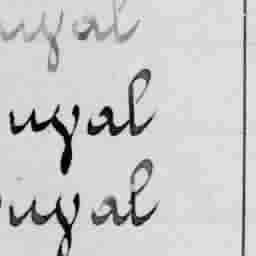 uyal
uyal
uyal